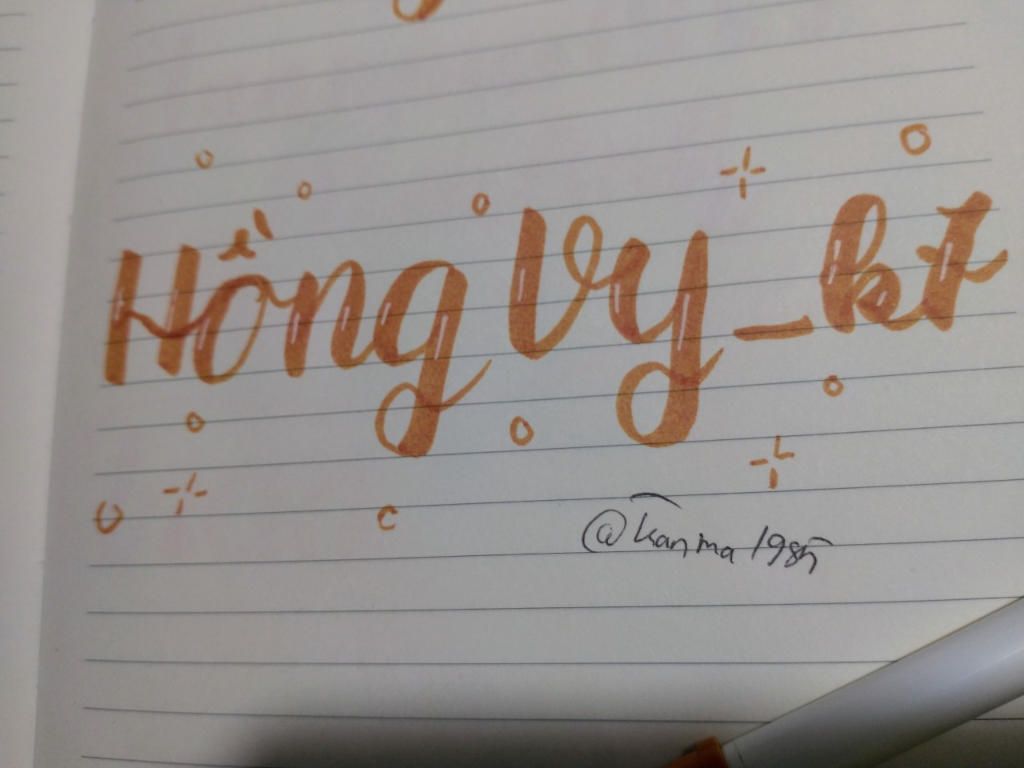 Hồng Vy_kt
@kanma1985